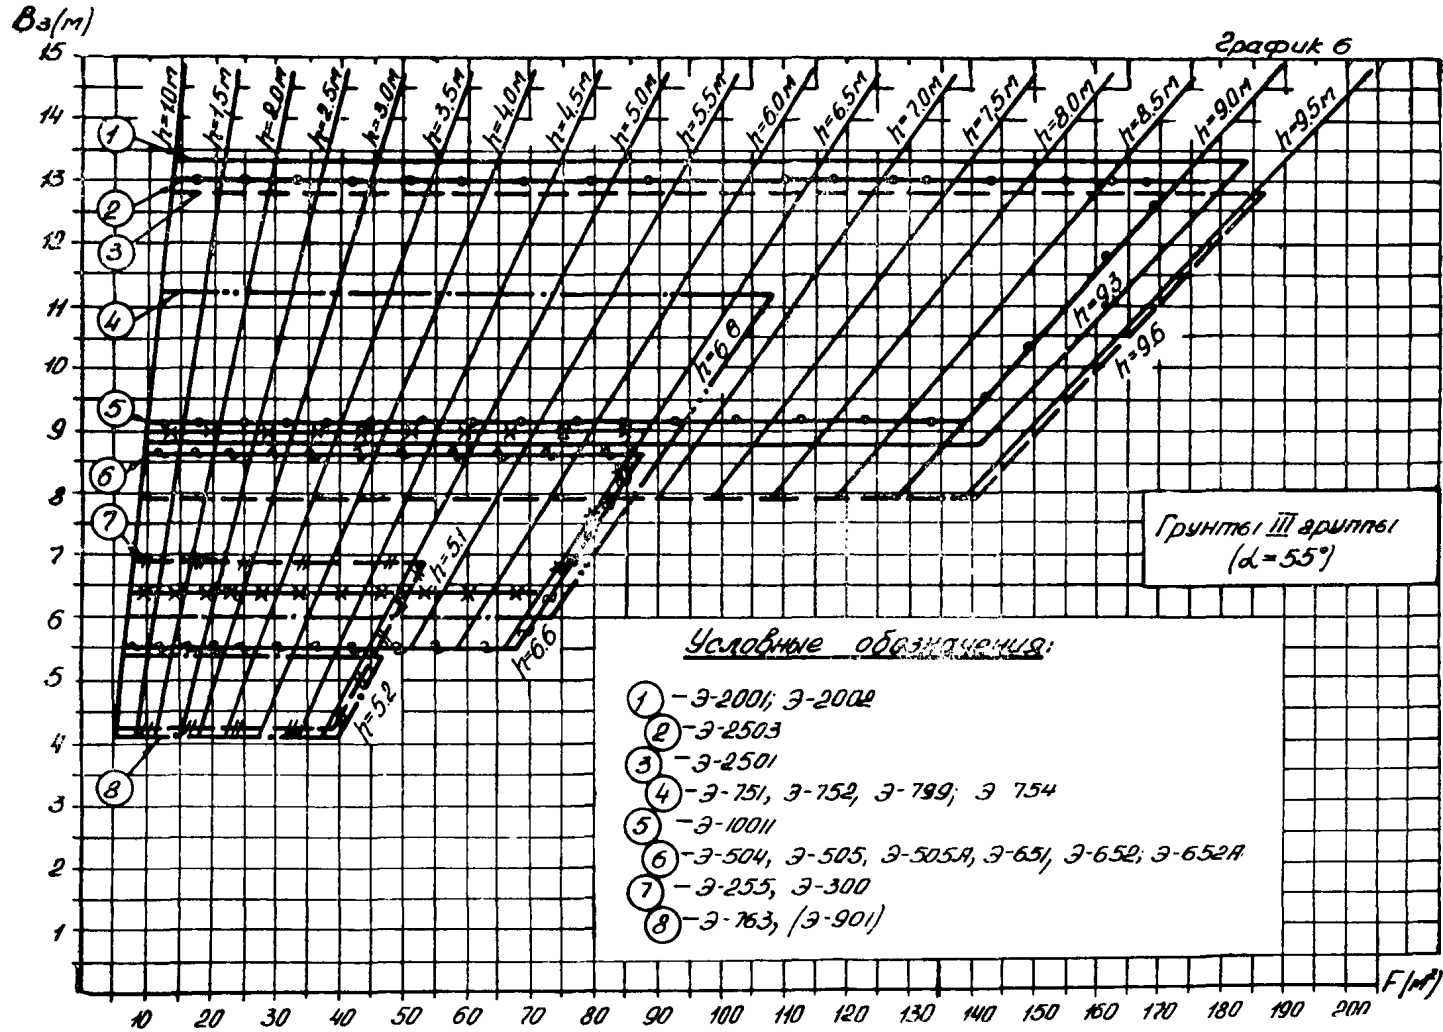 Bз(м)
График 6
15
14
13
12
11
10
9
8
7
6
5
4
3
2
1
h=1.0м
h=1,5м
h=2.0м
h=2.5м
h=3.0м
h=3.5м
h=4.0м
h=4.5м
h=5.0м
h=5.5м
h=6.0м
h=6.5м
h=7.0м
h=7.5м
h=8.0м
h=8.5м
h=9.0м
h=9.5м
1
2
3
4
5
6
7
8
h=6.8
h=9.3
h=9.6
h=5.1
h=6.6
h=5.2
Грунты III группы
(α=55°)
Условные обозначения:
1 - Э-2001; Э-2002
2 - Э-2503
3 - Э-2501
4 - Э-751, Э-752, Э-799; Э 754
5 - Э-10011
6 - Э-504, Э-505, Э-505А, Э-651, Э-652; Э-652А
7 - Э-255, Э-300
8 - Э-763, (Э-901)
10 20 30 40 50 60 70 80 90 100 110 120 130 140 150 160 170 180 190 200
F(м²)